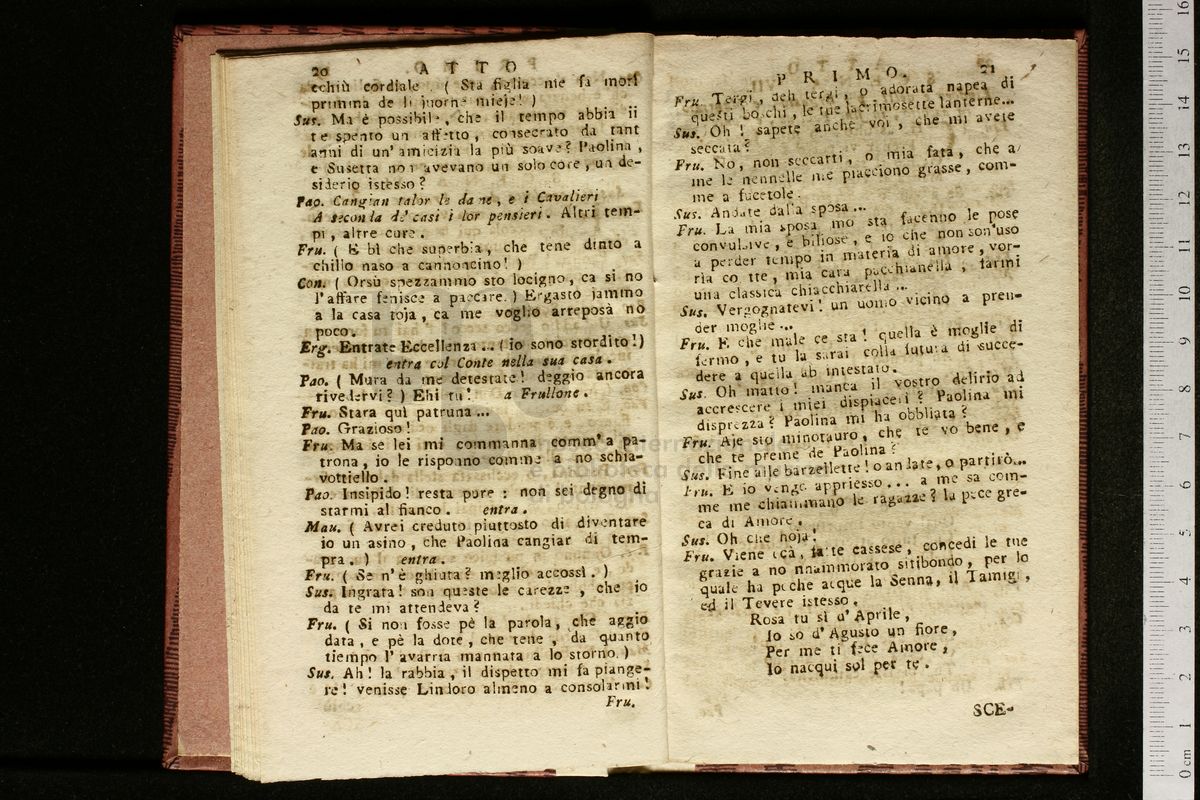 20 ATTO
cchiù cordiale. ( Sta figlia me fa morì
primma de li juorne mieje! )
Sus. Ma è possibile, che il tempo abbia in
te spento un affetto, consecrato da tant
anni di un' amicizia la più soave? Paolina,
e Susetta non avevano un solo core, un de-
siderio istesso?
Pao. Cangian talor le dame, e i Cavalieri
A seconda de' casi i lor pensieri. Altri tem-
pi, altre cure.
Fru. ( E bì che superbia, che tene dinto a
chillo naso a cannoncino! )
Con. ( Orsù spezzammo sto locigno, ca si no
l'affare fenisce a paccare. ) Ergasto jammo
a la casa toja, ca me voglio arreposà no
poco.
Erg. Entrate Eccellenza... ( io sono stordito! )
entra col Conte nella sua casa.
Pao. ( Mura da me detestate! deggio ancora
rivedervi? ) Ehi tu! a Frullone.
Fru. Stara quì patruna ...
Pao. Grazioso!
Fru. Ma se lei mi commanna comm' a pa-
trona, io le risponno comme a no schia-
vottiello.
Pao. Insipido! resta pure: non sei degno di
starmi al fianco. entra.
Mau. ( Avrei creduto piuttosto di diventare
io un asino, che Paolina cangiar di tem-
pra. ) entra.
Fru. ( Se n'è ghiuta? meglio accossì. )
Sus. Ingrata! son queste le carezze, che io
da te mi attendeva?
Fru. ( Si non fosse pè la parola, che aggio
data, e pè la dote, che tene, da quanto
tiempo l'avarria mannata a lo storno. )
Sus. Ah! la rabbia, il dispetto mi fa piange-
re! venisse Lindoro almeno a consolarmi!
Fru.
PRIMO. 21
Fru. Tergi, deh tergi, o adorata napea di
questi boschi, le tue lacrimosette lanterne...
Sus. Oh! sapete anche voi, che mi avete
seccata?
Fru. No, non seccarti, o mia fata, che a
me le nennelle me piacciono grasse, com-
me a fucetole.
Sus. Andate dalla sposa ...
Fru. La mia sposa mo sta facenno le pose
convulsive, e biliose, e io che non son'uso
a perder tempo in materia di amore, vor-
ria co tte, mia cara pacchianella, farmi
una classica chiacchiarella ...
Sus. Vergognatevi! un uomo vicino a pren-
der moglie ...
Fru. E che male ce sta! quella è moglie di
fermo, e tu la sarai colla futura di succe-
dere a quella ab intestato.
Sus. Oh matto! manca il vostro delirio ad
accrescere i miei dispiaceri? Paolina mi
disprezza? Paolina mi ha obbliata?
Fru. Aje sto minotauro, che te vo bene, e
che te preme de Paolina?
Sus. Fine alle barzellette! o andate, o partirò...
Fru. E io vengo appriesso... a me sa com-
me me chiammano le ragazze? la pece gre-
ca di Amore.
Sus. Oh che noja!
Fru. Viene ccà, fatte cassese, concedi le tue
grazie a no nnammorato sitibondo, per lo
quale ha poche acque la Senna, il Tamigi,
ed il Tevere istesso.
Rosa tu sì d' Aprile,
Io so d' Agusto un fiore,
Per me ti fece Amore,
Io nacqui sol per te.
SCE-
16
15
14
13
12
11
10
9
8
7
6
5
4
3
2
1
0 cm